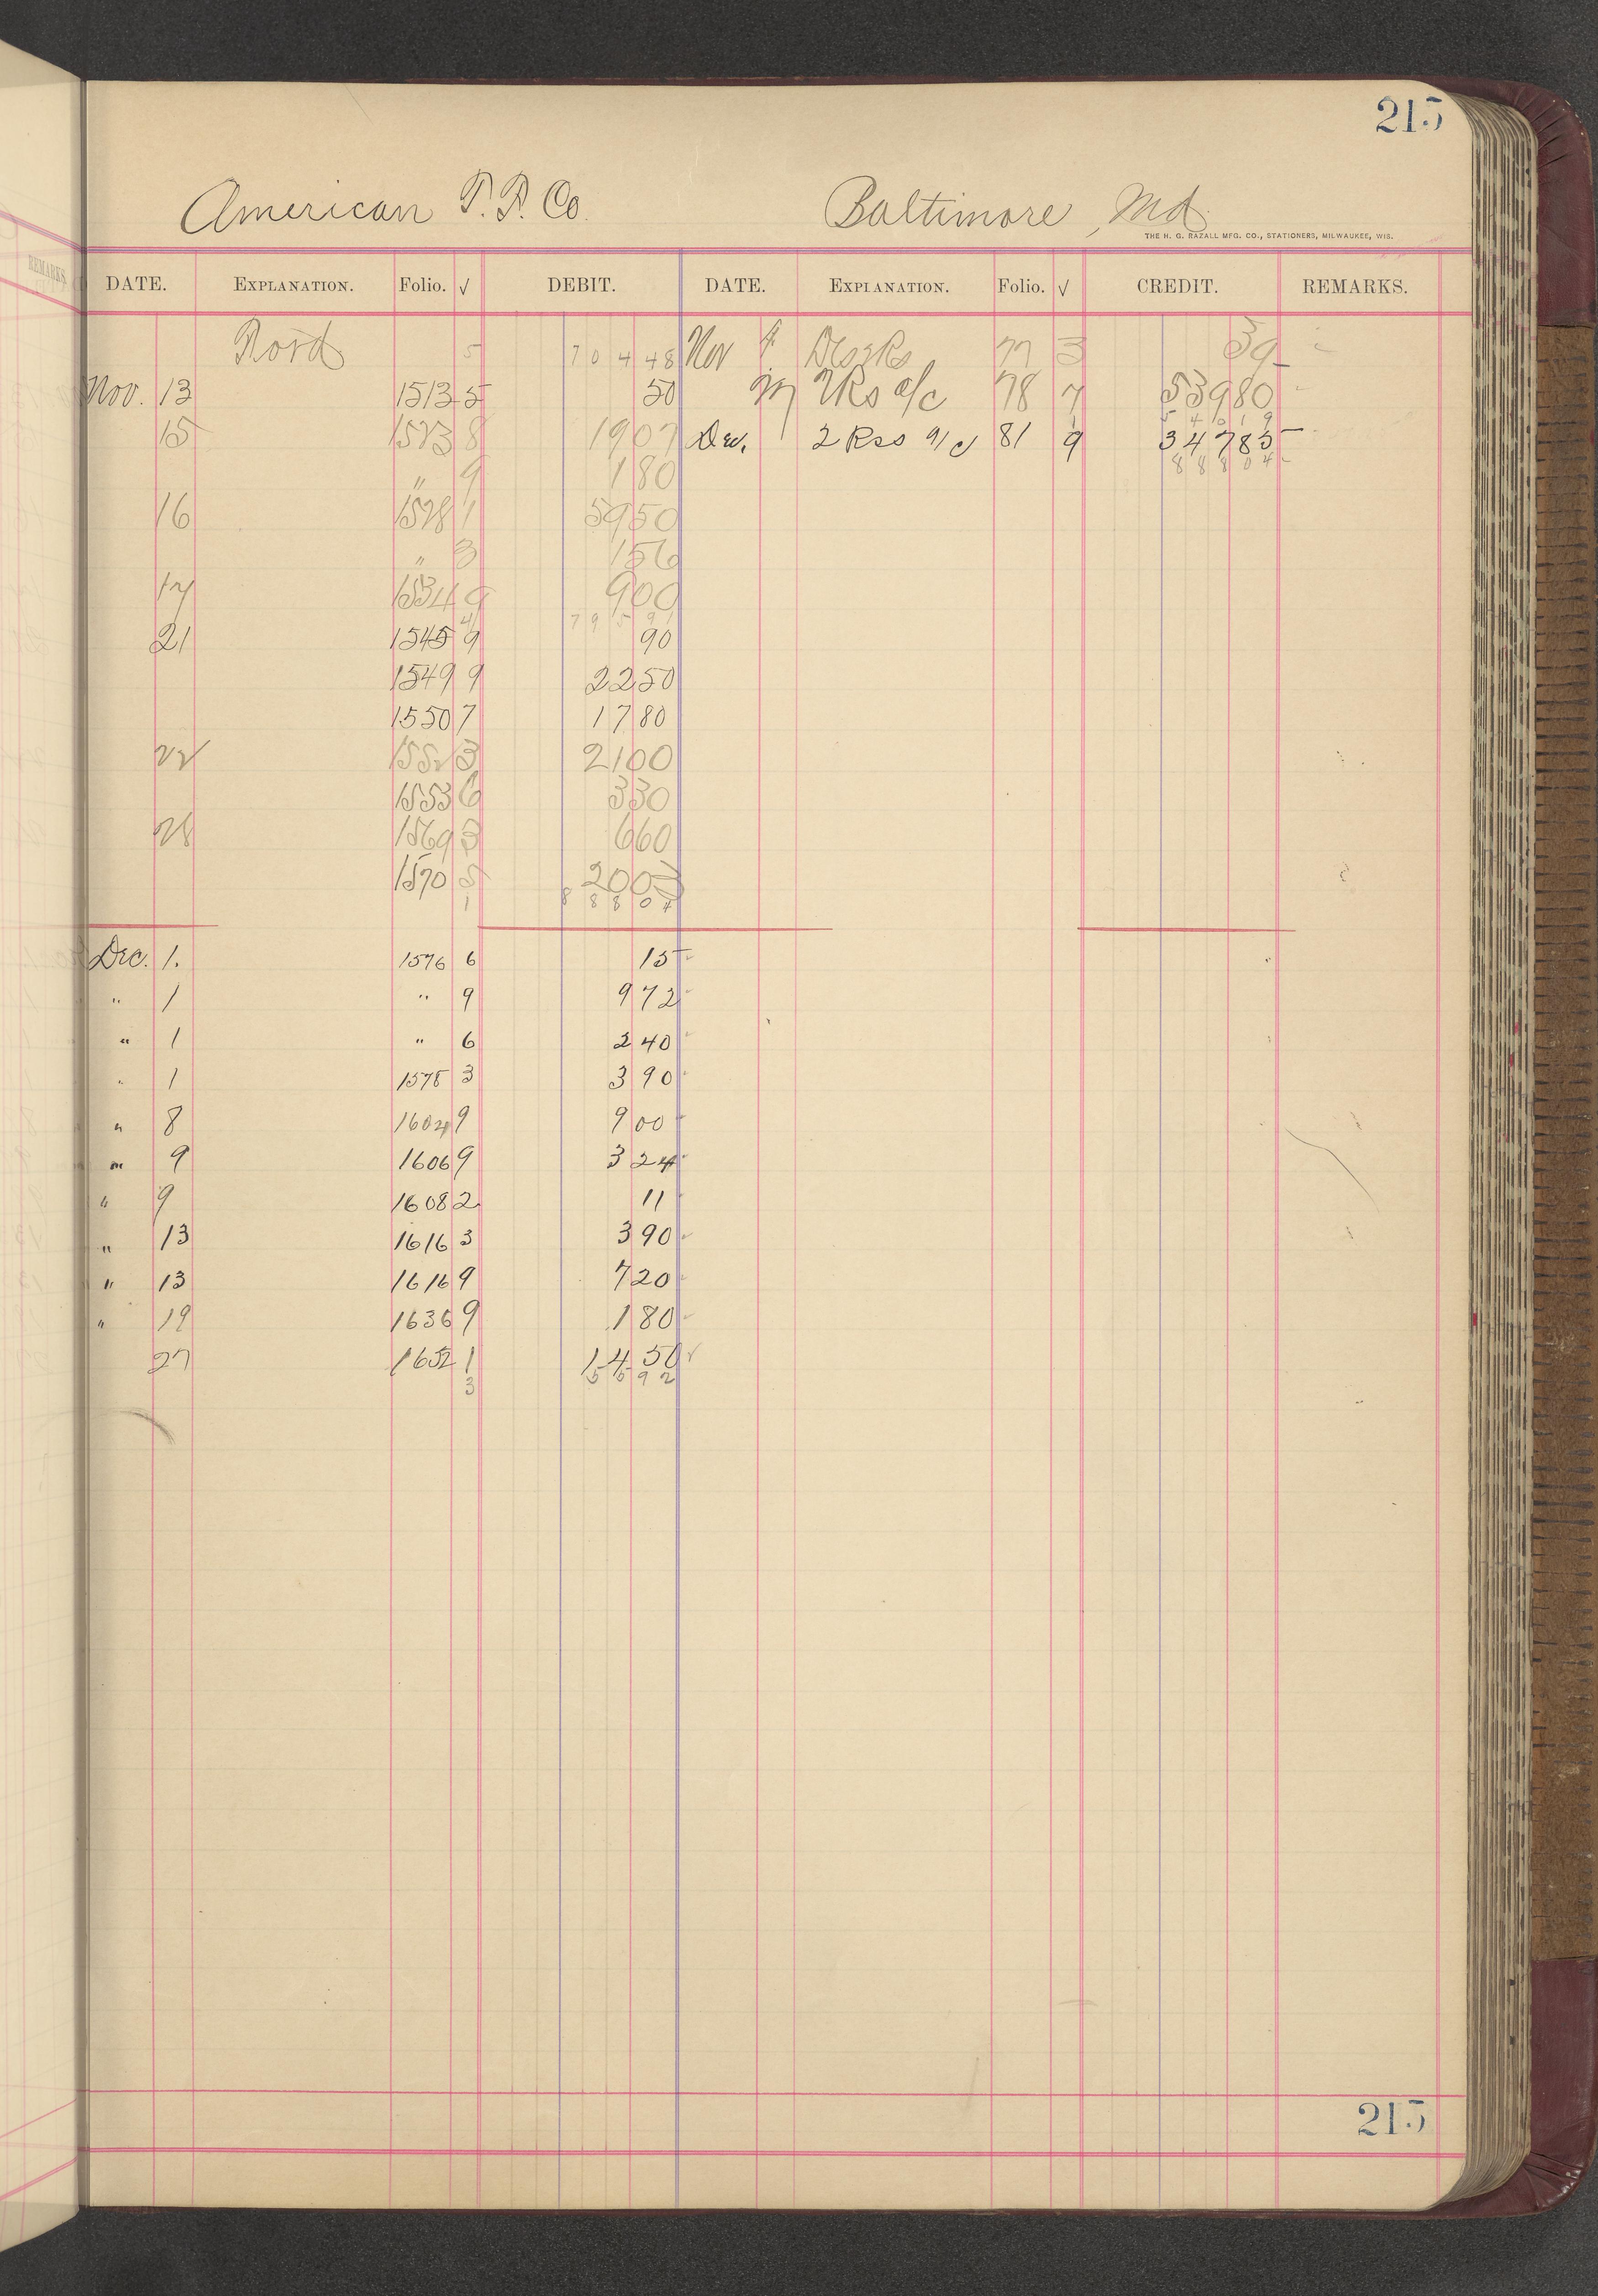 215
American T. P. Co. Baltimore, Md.
THE H. G. RAZALL MFG. CO., STATIONERS, MILWAUKEE, WIS.
DATE. EXPLANATION. Folio. √ DEBIT. DATE. EXPLANATION. Folio. √ CREDIT. REMARKS.
5 704 48 Nov 77 3 39
Nov. 13 1513 5 50 78 7 539 80
5 40 19
15 1523 8 19 07 Dec. 1 2 Rss a/c 81 9 347 85
888 04
" 9 1 80
16 1528 1 59 50
" 3 1 56
17 1534 9 9 00
795 91
21 1545 9 90
1549 9 22 50
1550 7 17 80
22 1552 3 21 00
1553 6 3 30
28 1569 3 6 60
1570 5 20 03
1 888 04
Dec. 1. 1576 6 15
" 1 " 9 9 72
" 1 " 6 2 40
" 1 1578 3 3 90
" 8 1604 9 9 00
" 9 1606 9 3 24
" 9 1608 2 11
" 13 1616 3 3 90
" 13 1616 9 7 20
" 19 1636 9 1 80
27 1652 1 14 50
3 55 92
215